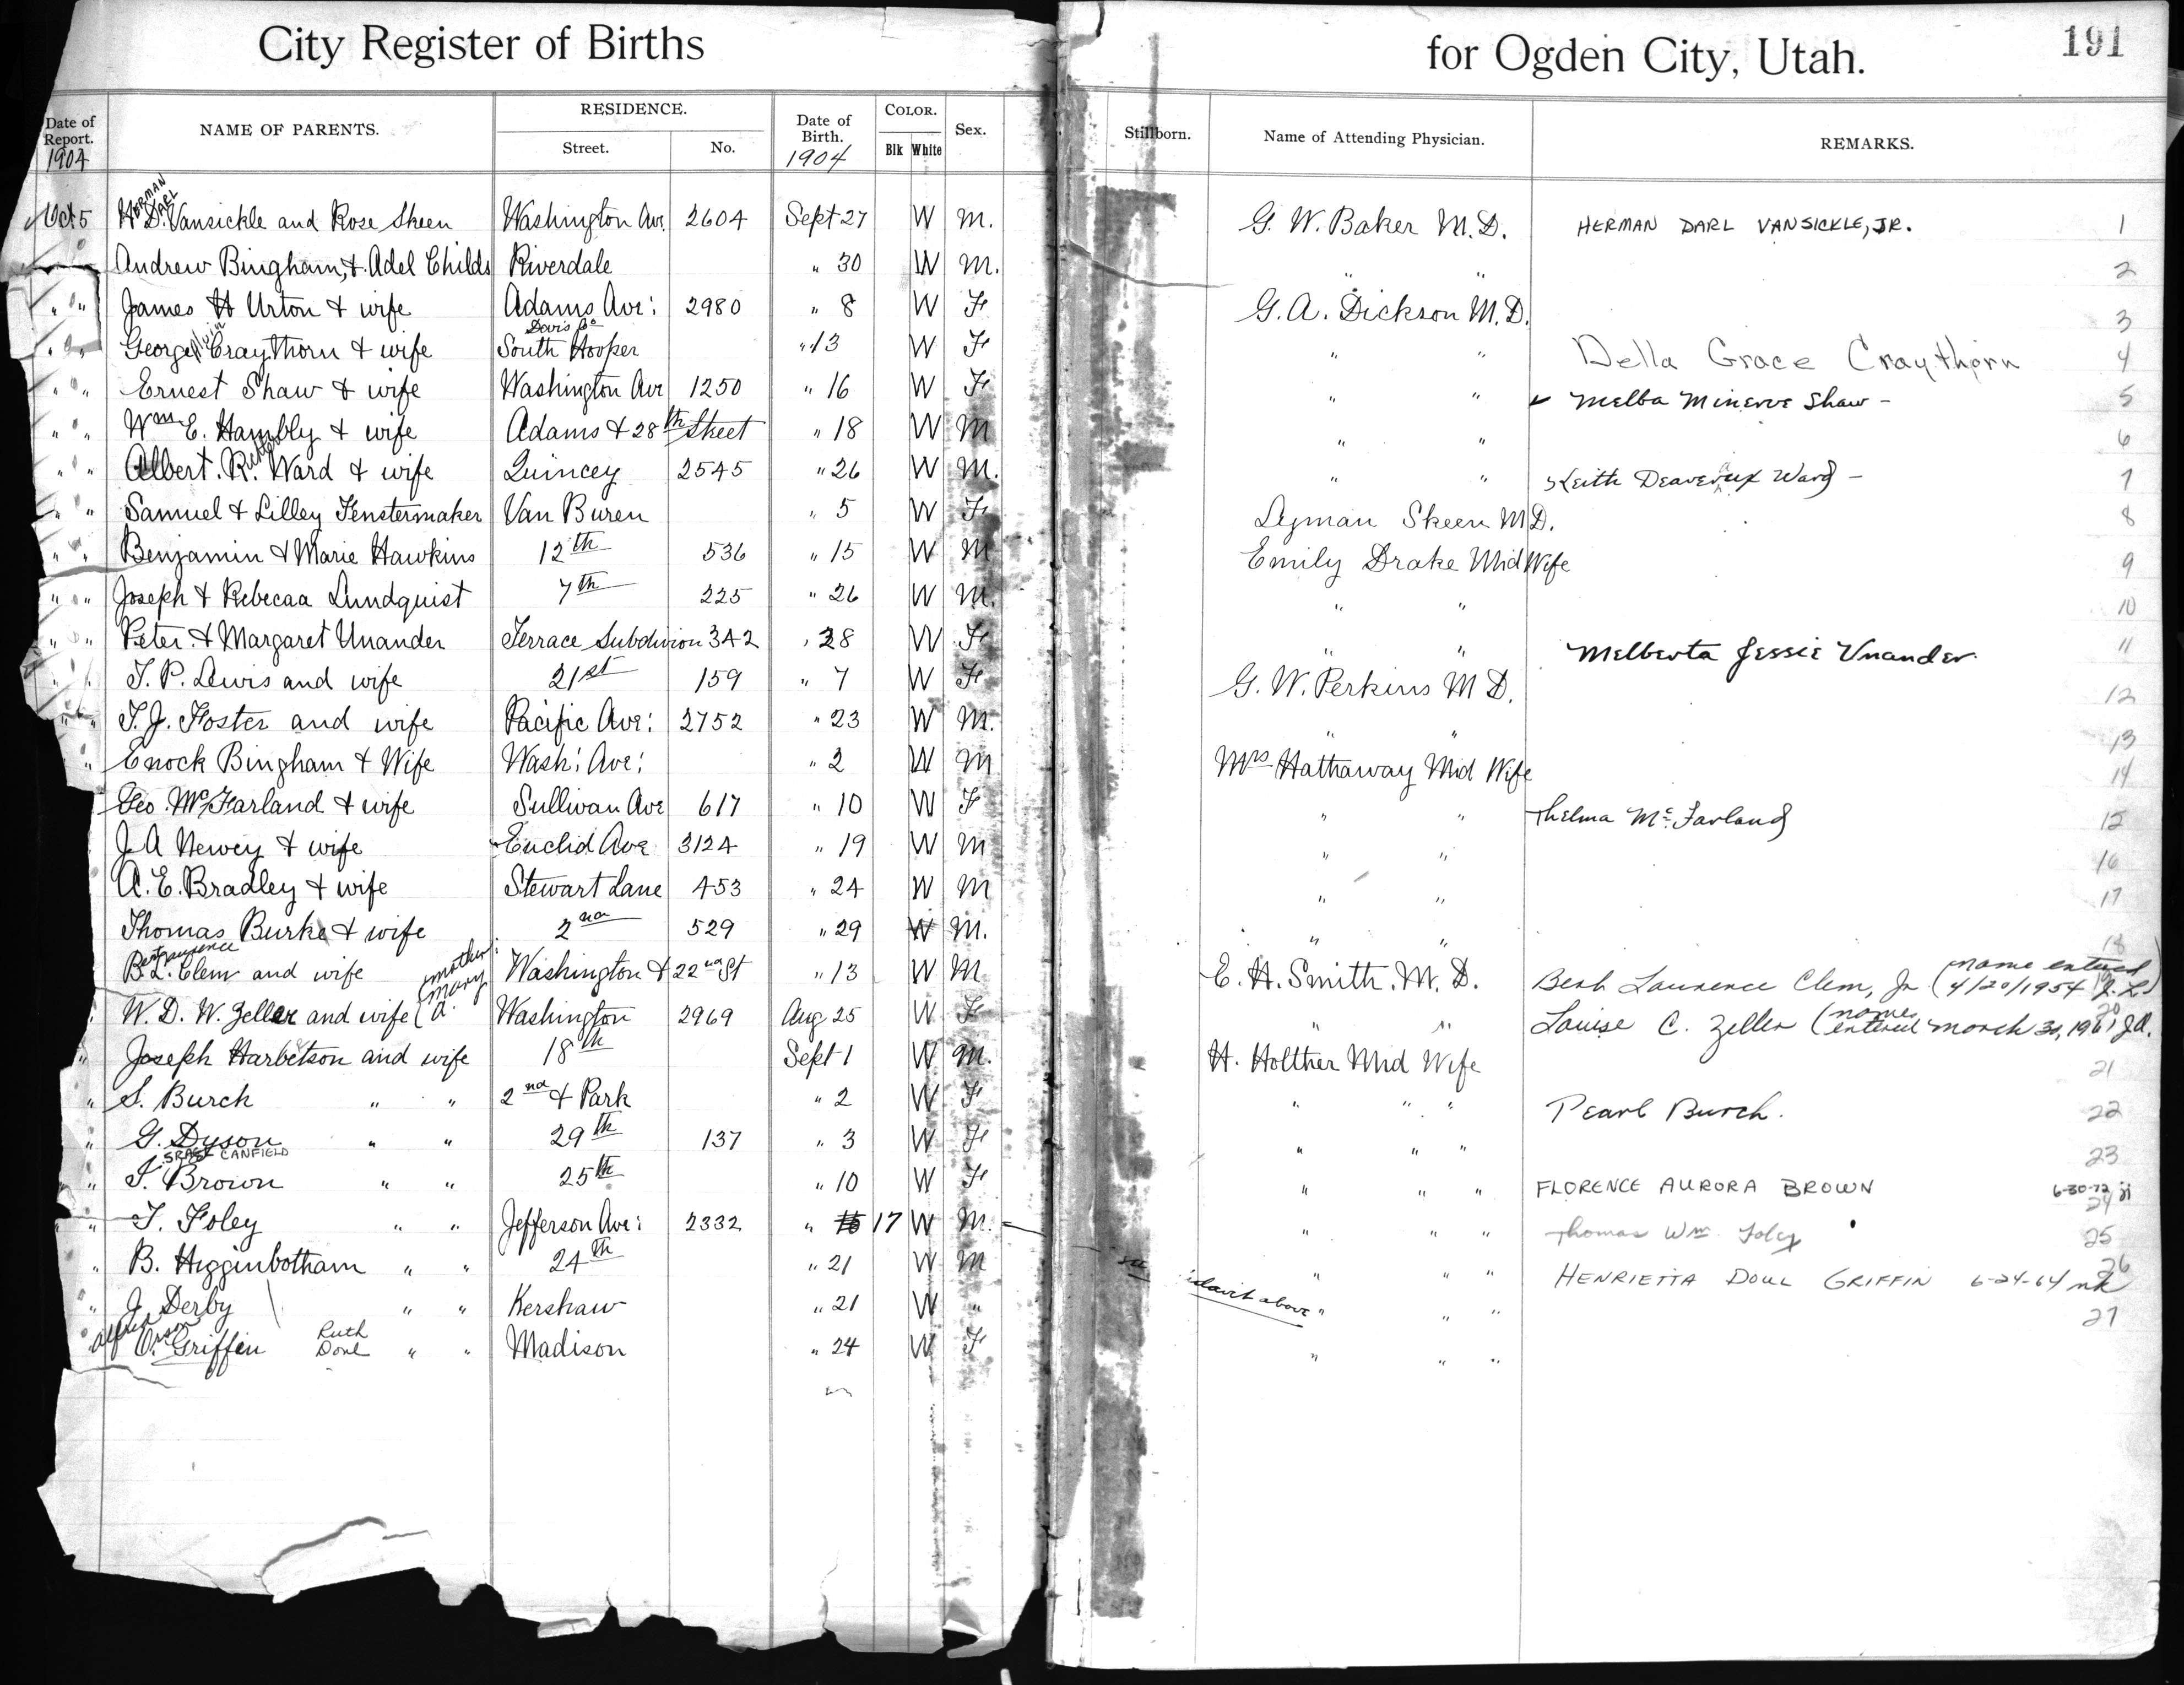 City Register of Births for Ogden City, Utah. 191
Date of Report. 1904 NAME OF PARENTS. RESIDENCE. Street. No. Date of Birth. 1904 COLOR. Blk White Sex. Stillborn. Name of Attending Physician. REMARKS.
HERMAN DARL
Oct 5 H. D. Vansickle and Rose Skeen Washington Av. 2604 Sept 27 W M. G. W. Baker M.D. HERMAN DARL VANSICKLE, JR. 1
Andrew Bingham, & Adel Childs Riverdale " 30 W M. " " 2
" " James H Urton & wife Adams Ave: 2980 " 8 W F G. A. Dickson M.D. 3
Davis Co
" " George Craythorn & wife South Hooper " 13 W F " " Della Grace Craythorn 4
" " Ernest Shaw & wife Washington Ave 1250 " 16 W F " " Melba Minerve Shaw - 5
" " Wm E. Hambly & wife Adams & 28th Street " 18 W M " " 6
" " Albert. R. Ward & wife Quincey 2545 " 26 W M. " " Keith Deaveraux Ward - 7
" " Samuel & Lilley Fenstermaker Van Buren " 5 W F Lyman Skeen M.D. 8
" " Benjamin & Marie Hawkins 12th 536 " 15 W M Emily Drake Mid Wife 9
" " Joseph & Rebecaa Lundquist 7th 225 " 26 W M. " " 10
" " Peter & Margaret Unander Terrace Subdivion 342 " 28 W F " " Melberta Jessie Unander. 11
" " T. P. Lewis and wife 21st 159 " 7 W F G. W. Perkins M D. 12
" " T. J. Foster and wife Pacific Ave: 2752 " 23 W M. " " 13
" Enock Bingham & Wife Wash: Ave: " 2 W M Mrs Hathaway Mid Wife 14
Geo. McFarland & wife Sullivan Ave 617 " 10 W F " " Thelma McFarland 15
J A Newey & wife Euclid Ave 3124 " 19 W M " " 16
A. E. Bradley & wife Stewart Lane 453 " 24 W M " " 17
Thomas Burke & wife 2nd 529 " 29 W M. " " 18
B. L. Clem and wife Washington & 22nd St " 13 W M E. H. Smith. M. D. Bert Laurence Clem, Jr. (name entered 4/20/1954 J. L.) 19
W. D. W. Zeller and wife (mother: Mary A. Washington 2969 Aug 25 W F " " Louise C. Zeller (name entered March 31, 1961 J.A. 20
" Joseph Harbetson and wife 18th Sept 1 W M. H. Holther Mid Wife 21
" S. Burch " " 2nd & Park " 2 W F " " " Pearl Burch. 22
" G. Dyson " " 29th 137 " 3 W F " " " 23
CANFIELD
" I. Brown " " 25th " 10 W F " " " FLORENCE AURORA BROWN 6-30-72 jj 24
" T. Foley " " Jefferson Ave: 2332 " 17 W M. " " " Thomas Wm. Foley 25
" B. Higginbotham " " 24th " 21 W M " " " HENRIETTA DOUL GRIFFIN 6-24-64 26
" J. Derby " " Kershaw " 21 W " above " " " 27
Alfred Orson
O. Griffin Ruth Doul " " Madison " 24 W F " " "